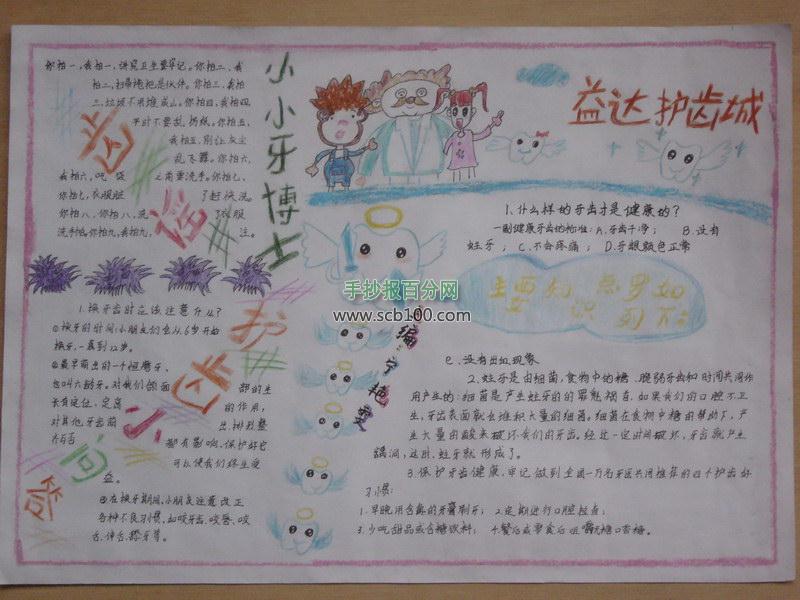 你拍一，我拍一，讲究卫生要牢记。你拍二，我
拍二，扫帚拖把是伙伴。你拍三，我拍
三，垃圾不用堆成山。你拍四，我拍四，
平时不要乱扔纸。你拍五，
我拍五，别让灰尘
乱飞舞。你拍六，
我拍六，吃饭之前要洗手。你拍七，
你拍七，衣服脏了赶快洗。
你拍八，你拍八，洗了衣服
洗手帕。你拍九，我拍九，
齿谣
小小牙博士
益达护齿城
1.什么样的牙齿才是健康的？
一副健康牙齿的标准：A.牙齿干净； B.没有
蛀牙； C.不会疼痛； D.牙龈颜色正常
主要知识点罗列如下：
E.没有出血现象
2.蛀牙是由细菌，食物中的糖、脆弱牙齿和时间共同作
用产生的：细菌是产生蛀牙的的罪魁祸首，如果我们的口腔不卫
生，牙齿表面就会堆积大量的细菌。细菌在食物中糖的帮助下，产
生大量的酸来破坏我们的牙齿。经过一定时间破坏，牙齿就产生
龋洞，这时，蛀牙就形成了。
3.保护牙齿健康，牢记做到全国一万名牙医共同推荐的四个护齿好
习惯：
1.早晚用含氟的牙膏刷牙； 2.定期进行口腔检查；
3.少吃甜品或含糖饮料； 4.餐后或零食后咀嚼无糖口香糖。
手抄报百分网
www.scb100.com
护齿小问答
1.换牙齿时应该注意什么？
①换牙的时间：小朋友们会从6岁开始
换牙，一直到12岁。
②最早萌出的一个恒磨牙，
也叫六龄牙。对我们颌面部的生
长有定位、定高的作用，
对其他牙齿萌出、排列整
齐与否都有影响。保护好它
可以使我们终生受
益。
③在换牙期间，小朋友注意改正
各种不良习惯，如咬牙齿、咬唇、咬
舌、伸舌、舔牙等。